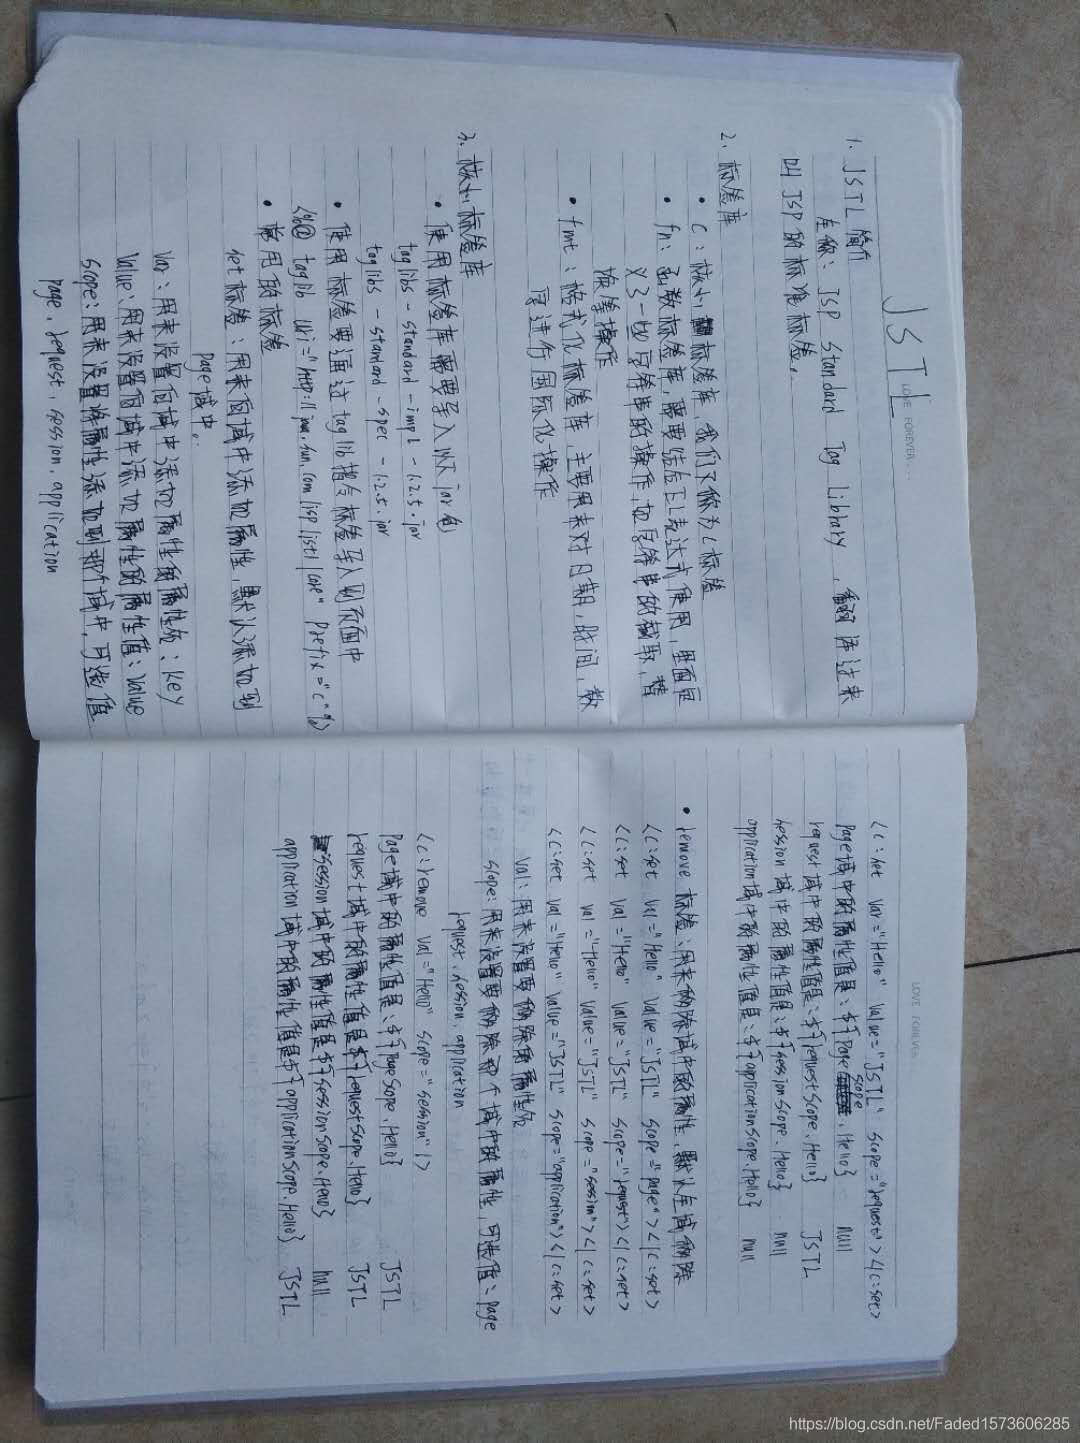 JSTL
LOVE FOREVER
1. JSTL简介
全称: JSP Standard Tag Library, 翻译过来
叫JSP的标准标签.
2. 标签库
• c: 核心标签库, 我们又称为c标签
• fn: 函数标签库, 需要结合EL表达式使用, 里面定
义了一切字符串的操作, 如字符串的截取, 替
换等操作
• fmt: 格式化标签库, 主要用来对日期, 时间, 数
字进行国际化操作
3. 核心标签库
• 使用标签库需要导入以下jar包
taglibs-standard-impl-1.2.5.jar
taglibs-standard-spec-1.2.5.jar
• 使用标签要通过taglib指令标签导入到页面中
<%@ taglib uri="http://java.sun.com/jsp/jstl/core" prefix="c"%>
• 常用的标签
set标签: 用来向域中添加属性, 默认添加到
page域中.
var: 用来设置向域中添加属性的属性名: key
value: 用来设置向域中添加属性的属性值: value
scope: 用来设置将属性添加到那个域中, 可选值
page, request, session, application
LOVE FOREVER
<c:set var="Hello" value="JSTL" scope="request"></c:set>
page域中的属性值是: ${pageScope.Hello} null
request域中的属性值是: ${requestScope.Hello} JSTL
session域中的属性值是: ${sessionScope.Hello} null
application域中的属性值是: ${applicationScope.Hello} null
• remove标签: 用来移除域中的属性, 默认全域移除
<c:set val="Hello" value="JSTL" scope="page"></c:set>
<c:set val="Hello" value="JSTL" scope="request"></c:set>
<c:set val="Hello" value="JSTL" scope="session"></c:set>
<c:set val="Hello" value="JSTL" scope="application"></c:set>
val: 用来设置要移除的属性名
scope: 用来设置要移除那个域中的属性, 可选值: page
request, session, application
<c:remove val="Hello" scope="session"/>
page域中的属性值是: ${pageScope.Hello} JSTL
request域中的属性值是${requestScope.Hello} JSTL
session域中的属性值是${sessionScope.Hello} null
application域中的属性值是${applicationScope.Hello} JSTL
https://blog.csdn.net/Faded1573606285